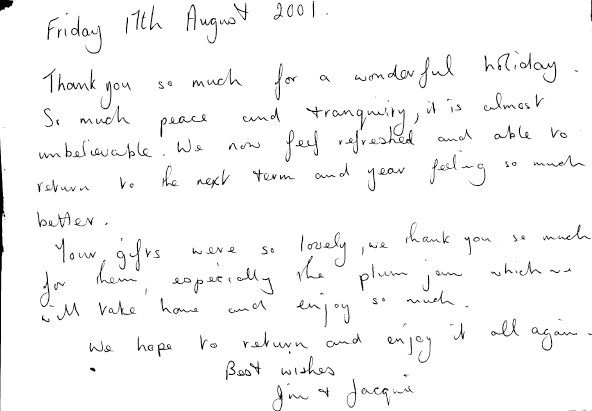 Friday 17th August 2001.
Thank you so much for a wonderful holiday.
So much peace and tranquiry, it is almost
unbelievable. We now feel refreshed and able to
return to the next term and year feeling so much
better.
Your gifts were so lovely, we thank you so much
for them, especially the plum jam which we
will take home and enjoy so much.
We hope to return and enjoy it all again.
Best wishes
Jim & Jacquie